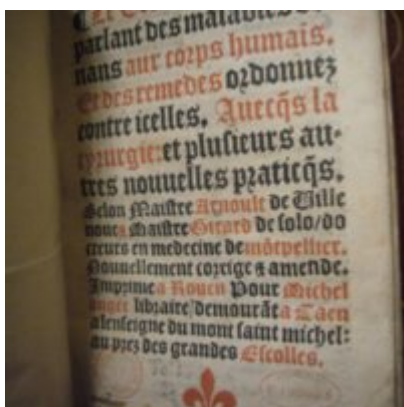 parlant des maladies
nans aux corps humais.
Et des remedes ordonnez
contre icelles. Avecq̄s la
cyrurgie: et plusieurs au-
tres nouvelles praticq̄s.
Selon Maistre Arnoult de Ville
nove & Maistre Girard de solo/do
cteurs en medecine de mōtpellier.
Nouvellement corrige & amende.
Imprime a Rouen Pour Michel
angier libraire/demourāt a Caen
a lenseigne du mont saint michel:
au prez des grandes Escolles.